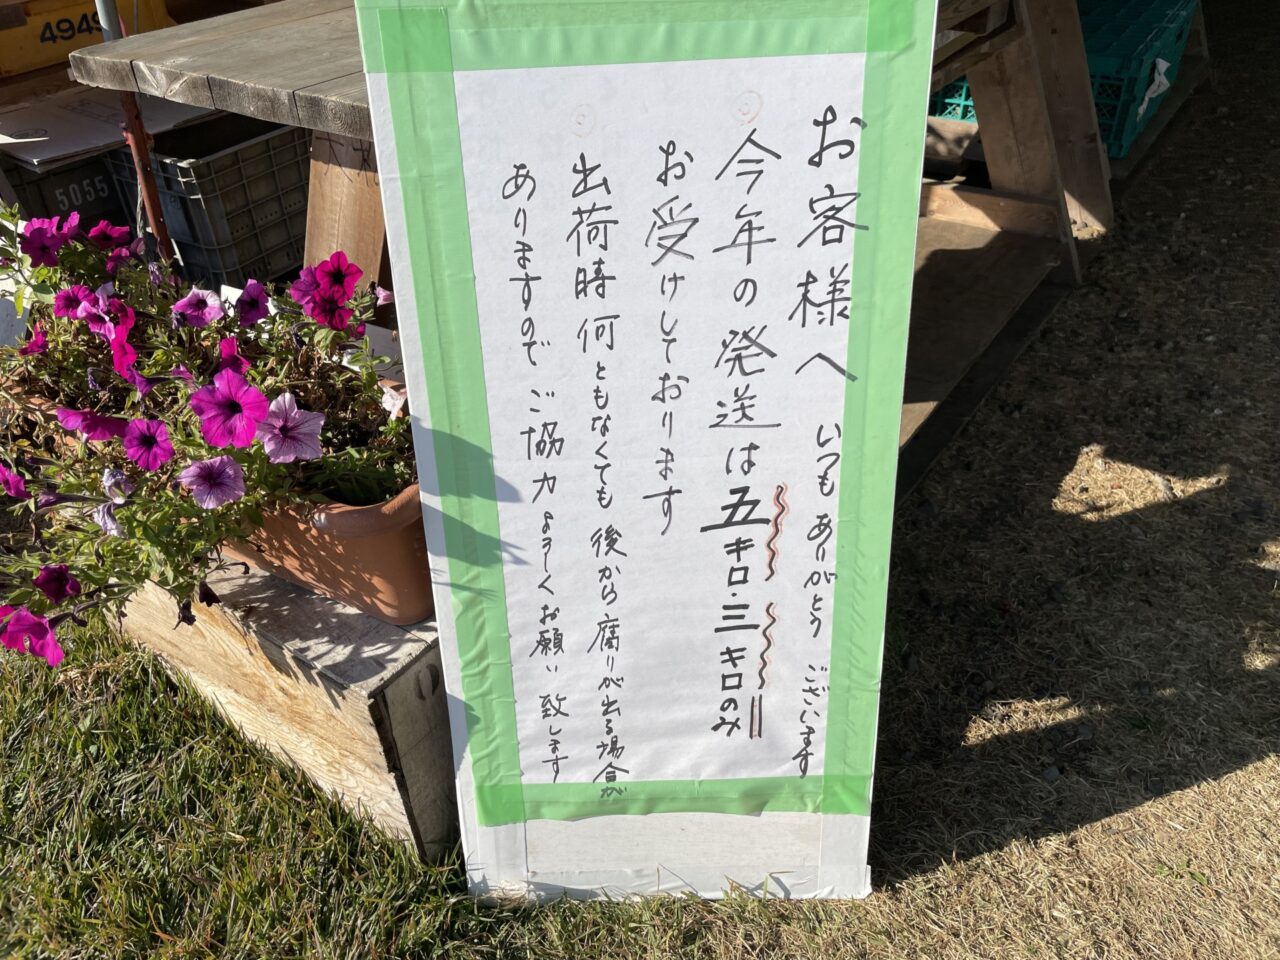 お客様へ いつも ありがとう ございます
今年の発送は五キロ・三キロのみ
お受けしております
出荷時何ともなくても 後から腐りが出る場合が
ありますので ご協力よろしくお願い致します
4949
5055